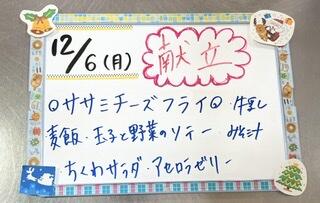 12/6(月) 献立
○ササミチーズフライ○・牛乳
麦飯・玉子と野菜のソテー みそ汁
・ちくわサラダ・アセロラゼリー